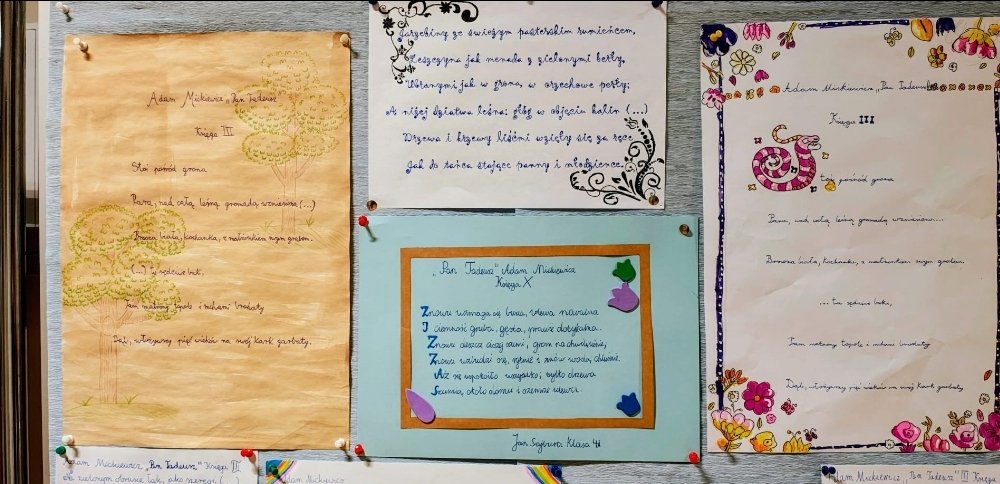 Adam Mickiewicz "Pan Tadeusz"
Księga III
Stoi pośród grona
Para, nad całą leśną gromadą wzniesiona (...)
Brzoza biała, kochanka, z małżonkiem swym grabem.
(...) tu sędziwe buki,
Tam matrony topole i mchami brodaty
Dąb, włożywszy pięć wieków na swój kark garbaty,
Jarzębiny ze świeżym pasterskim rumieńcem,
Leszczyna jak menada z zielonymi berły,
Ubranymi, jak w grona, w orzechowe perły;
A niżej dziatwa leśna: głóg w objęciu kalin (...)
Drzewa i krzewy liśćmi wzięły się za ręce
Jak do tańca stojące panny i młodzieńce
"Pan Tadeusz" Adam Mickiewicz
Księga X
Znowu wzmaga się burza, ulewa nawalna
I ciemność gruba, gęsta, prawie dotykalna.
Znowu deszcz ciszej szumi, grom na chwilę uśnie;
Znowu wzbudzi się, ryknie i znów wodą chluśnie.
Aż się uspokoiło wszystko; tylko drzewa
Szumią około domu i szemrze ulewa.
Jan Klasa 4d
Adam Mickiewicz "Pan Tadeusz"
Księga III
Stoi pośród grona
Para, nad całą leśną gromadą wzniesiona...
Brzoza biała, kochanka, z małżonkiem swym grabem.
... tu sędziwe buki,
Tam matrony topole i mchami brodaty
Dąb, włożywszy pięć wieków na swój kark garbaty
Adam Mickiewicz "Pan Tadeusz" Księga III
Na zielonym obrusie łąk, jako szeregi (...)
Adam Mickiewicz
Adam Mickiewicz "Pan Tadeusz" III Księga